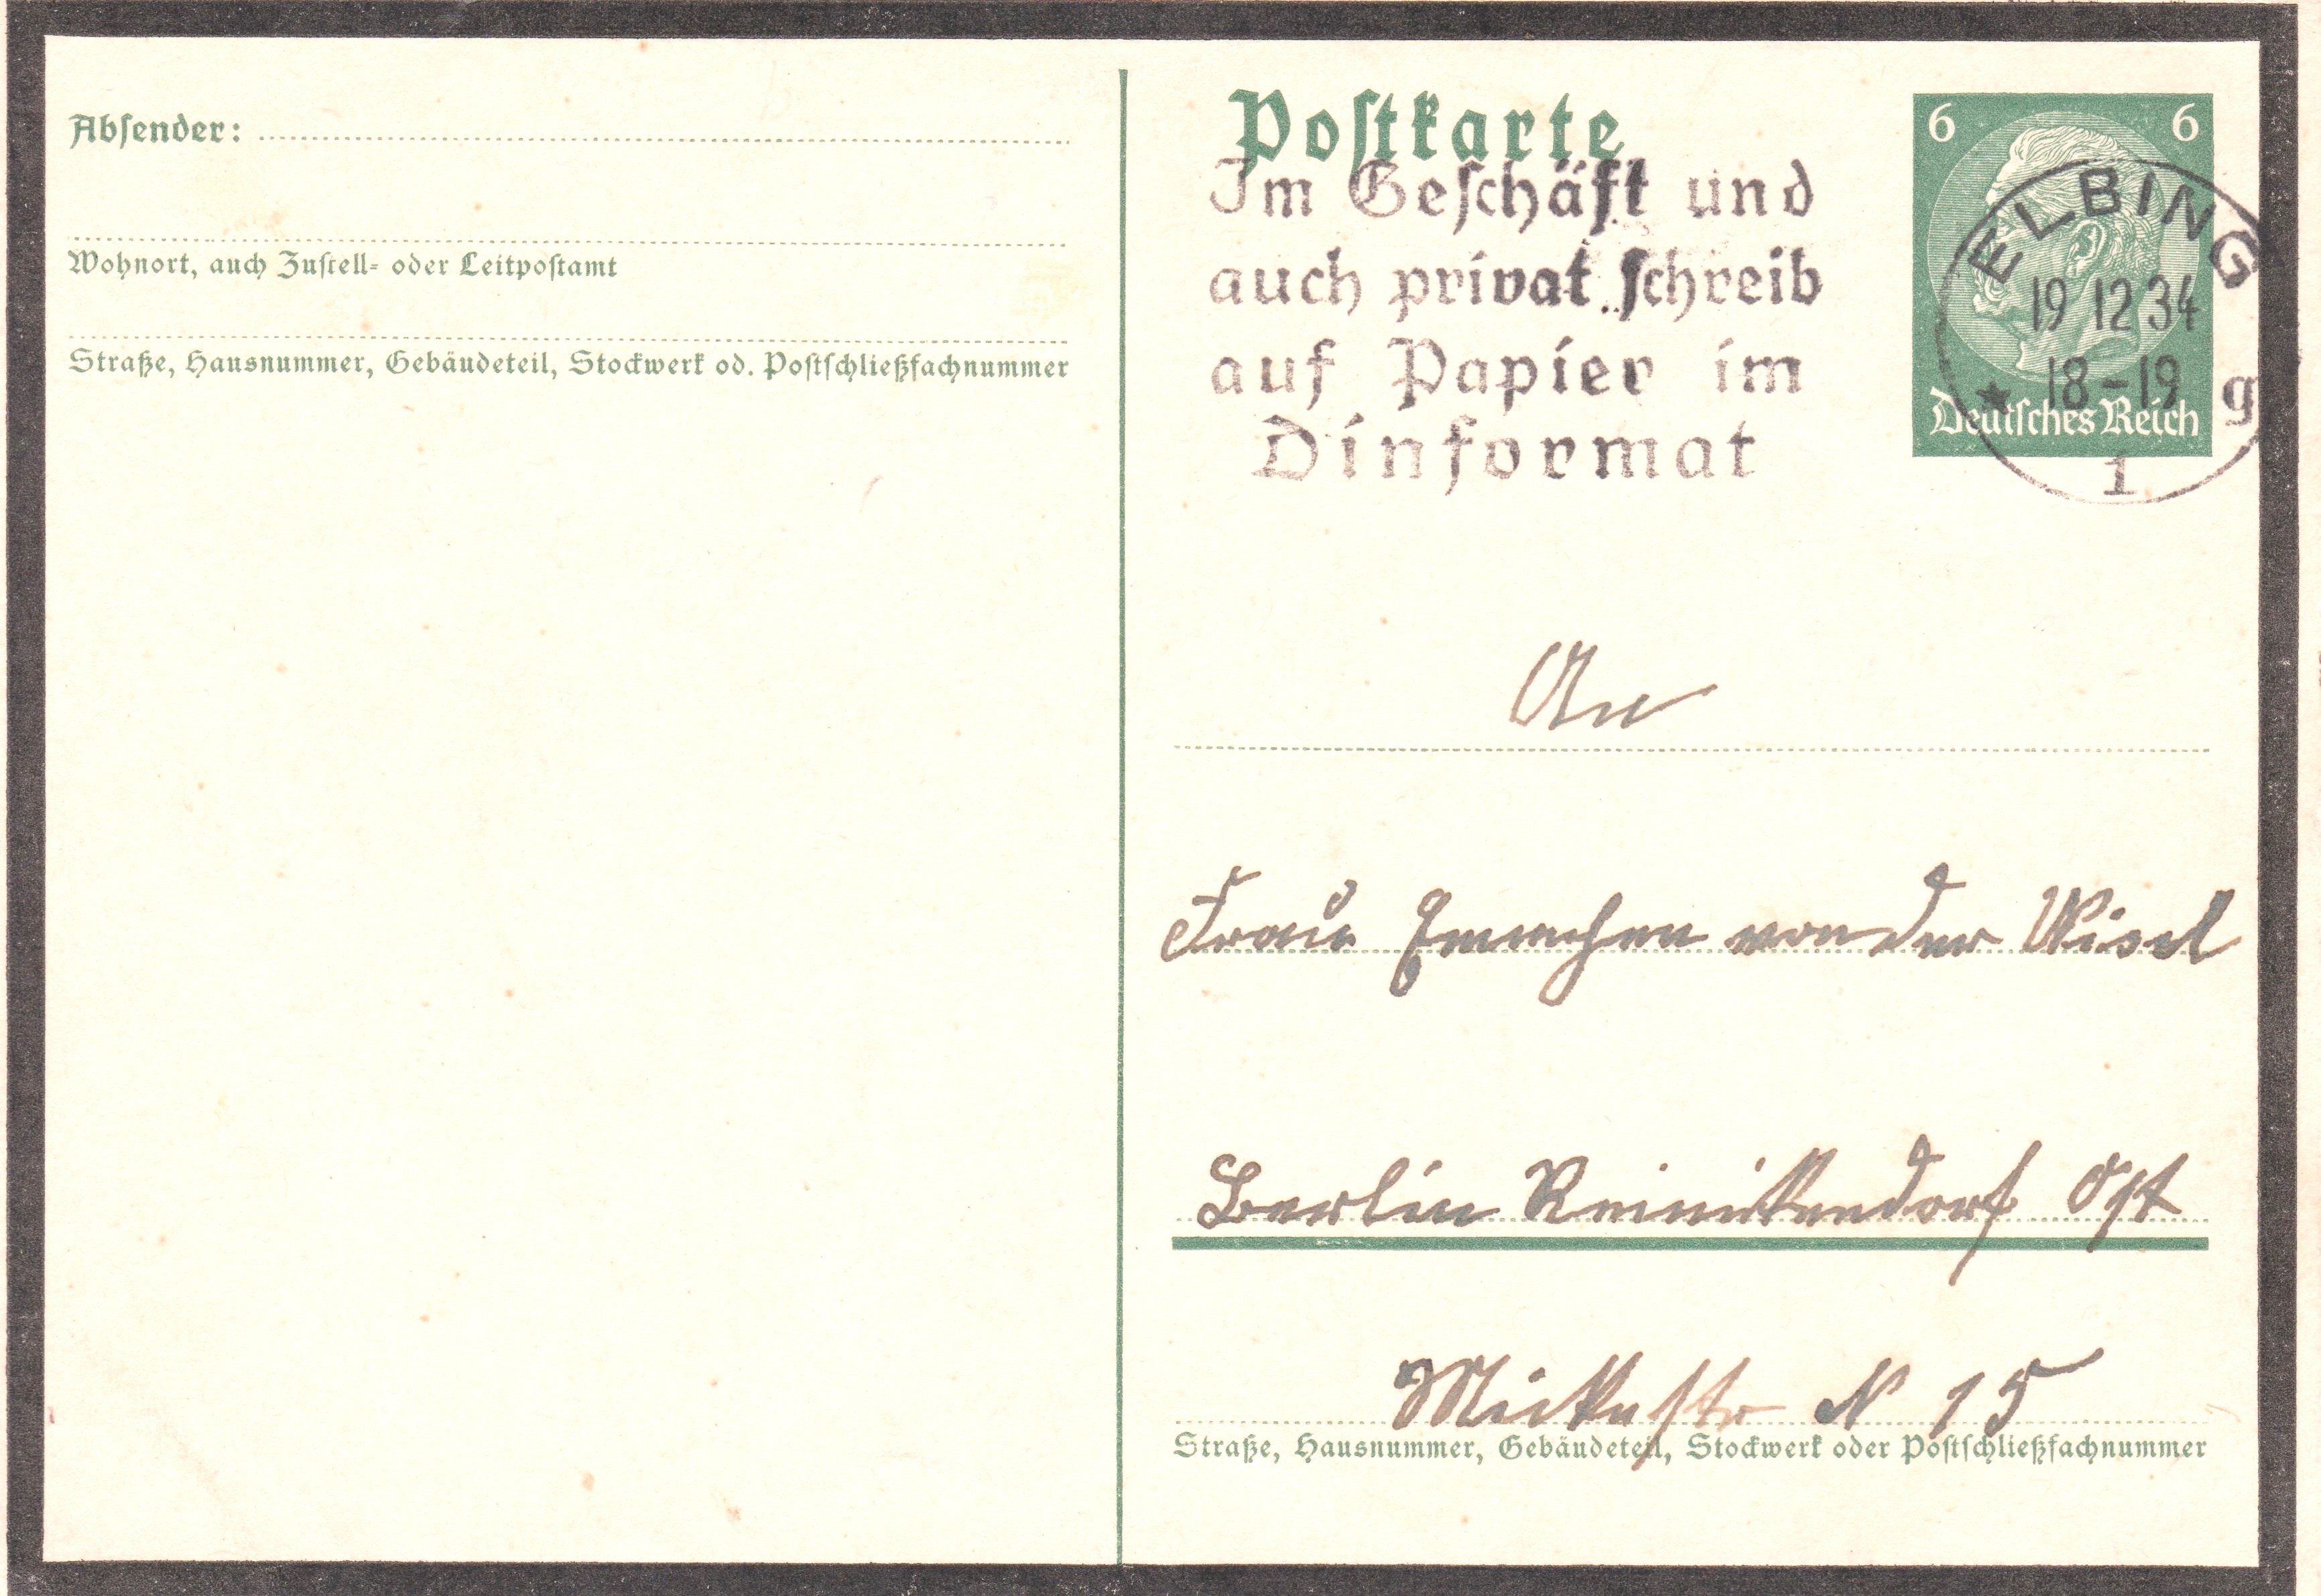 Absender:
Wohnort, auch Zustell- oder Leitpostamt
Straße, Hausnummer, Gebäudeteil, Stockwerk od. Postschließfachnummer
Postkarte
Im Geschäft und
auch privat schreib
auf Papier im
Dinformat
6 6
Deutsches Reich
ELBING
19 12 34
18-19
g
1
An
Frau von der
Berlin Reinikendorf Ost
Mickestr N 15
Straße, Hausnummer, Gebäudeteil, Stockwerk oder Postschließfachnummer